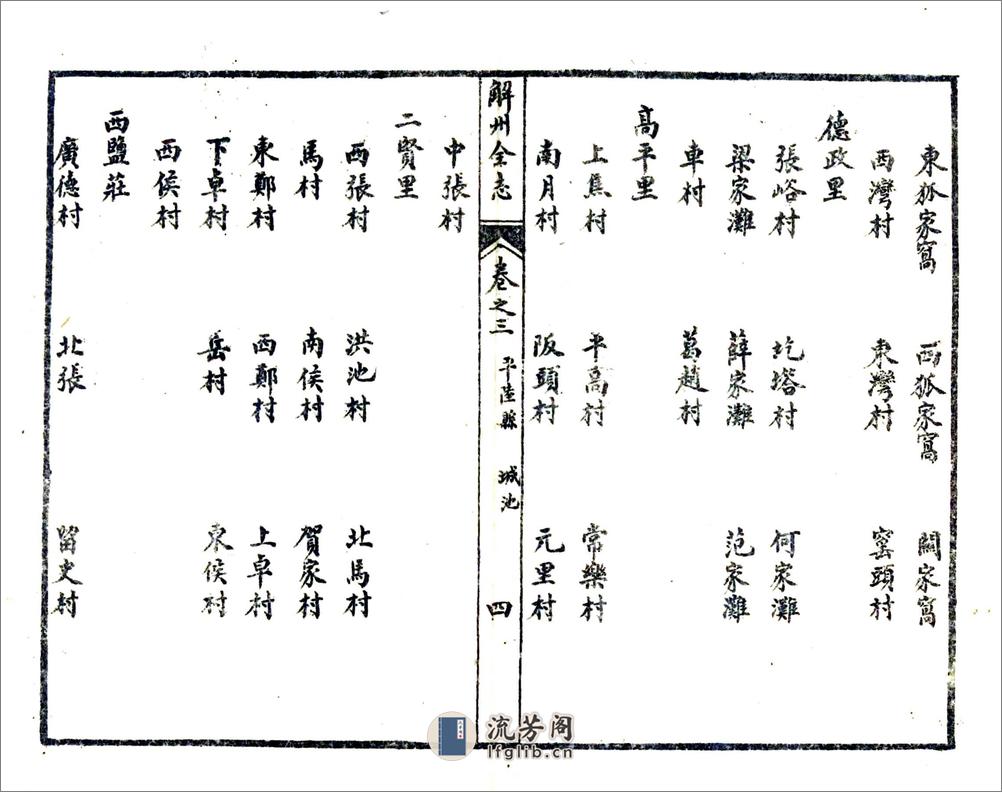 東狐家窩 西狐家窩 關家窩
西灣村 東灣村 窰頭村
德政里
張峪村 圪塔村 何家灘
梁家灘 薛家灘 范家灘
車村 葛趙村
高平里
上焦村 平高村 常樂村
南月村 阪頭村 元里村
解州全志 卷之三 平陸縣 城池 四
中張村
二賢里
西張村 洪池村 北馬村
馬村 南侯村 賀家村
東鄭村 西鄭村 上卓村
下卓村 岳村 東侯村
西侯村
西鹽莊
廣德村 北張 留史村
流芳阁
lfglib.cn